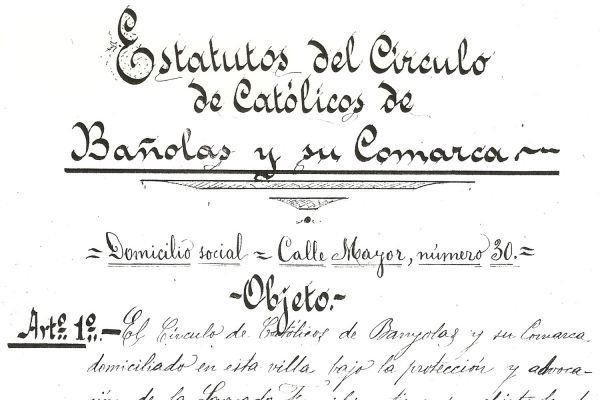 Estatutos del Círculo
de Católicos de
Bañolas y su Comarca
= Domicilio social = Calle Mayor, número 30. =
- Objeto. -
Artº. 1º. - El Círculo de Católicos de Banyolas y su Comarca,
domiciliado en esta villa bajo la protección y advoca-
ción de la Sagrada